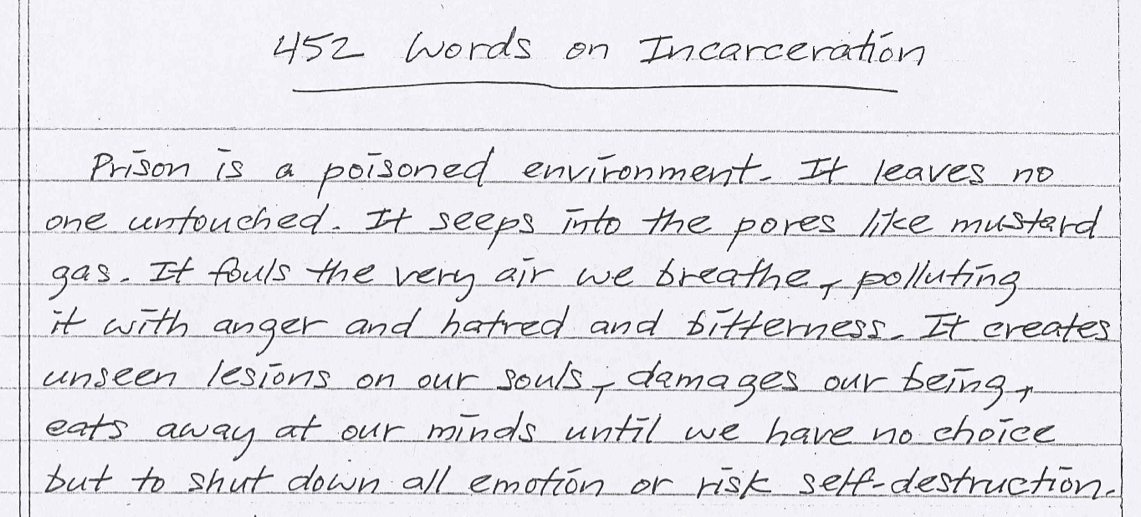 452 Words on Incarceration
Prison is a poisoned environment. It leaves no
one untouched. It seeps into the pores like mustard
gas. It fouls the very air we breathe, polluting
it with anger and hatred and bitterness. It creates
unseen lesions on our souls, damages our being,
eats away at our minds until we have no choice
but to shut down all emotion or risk self-destruction.